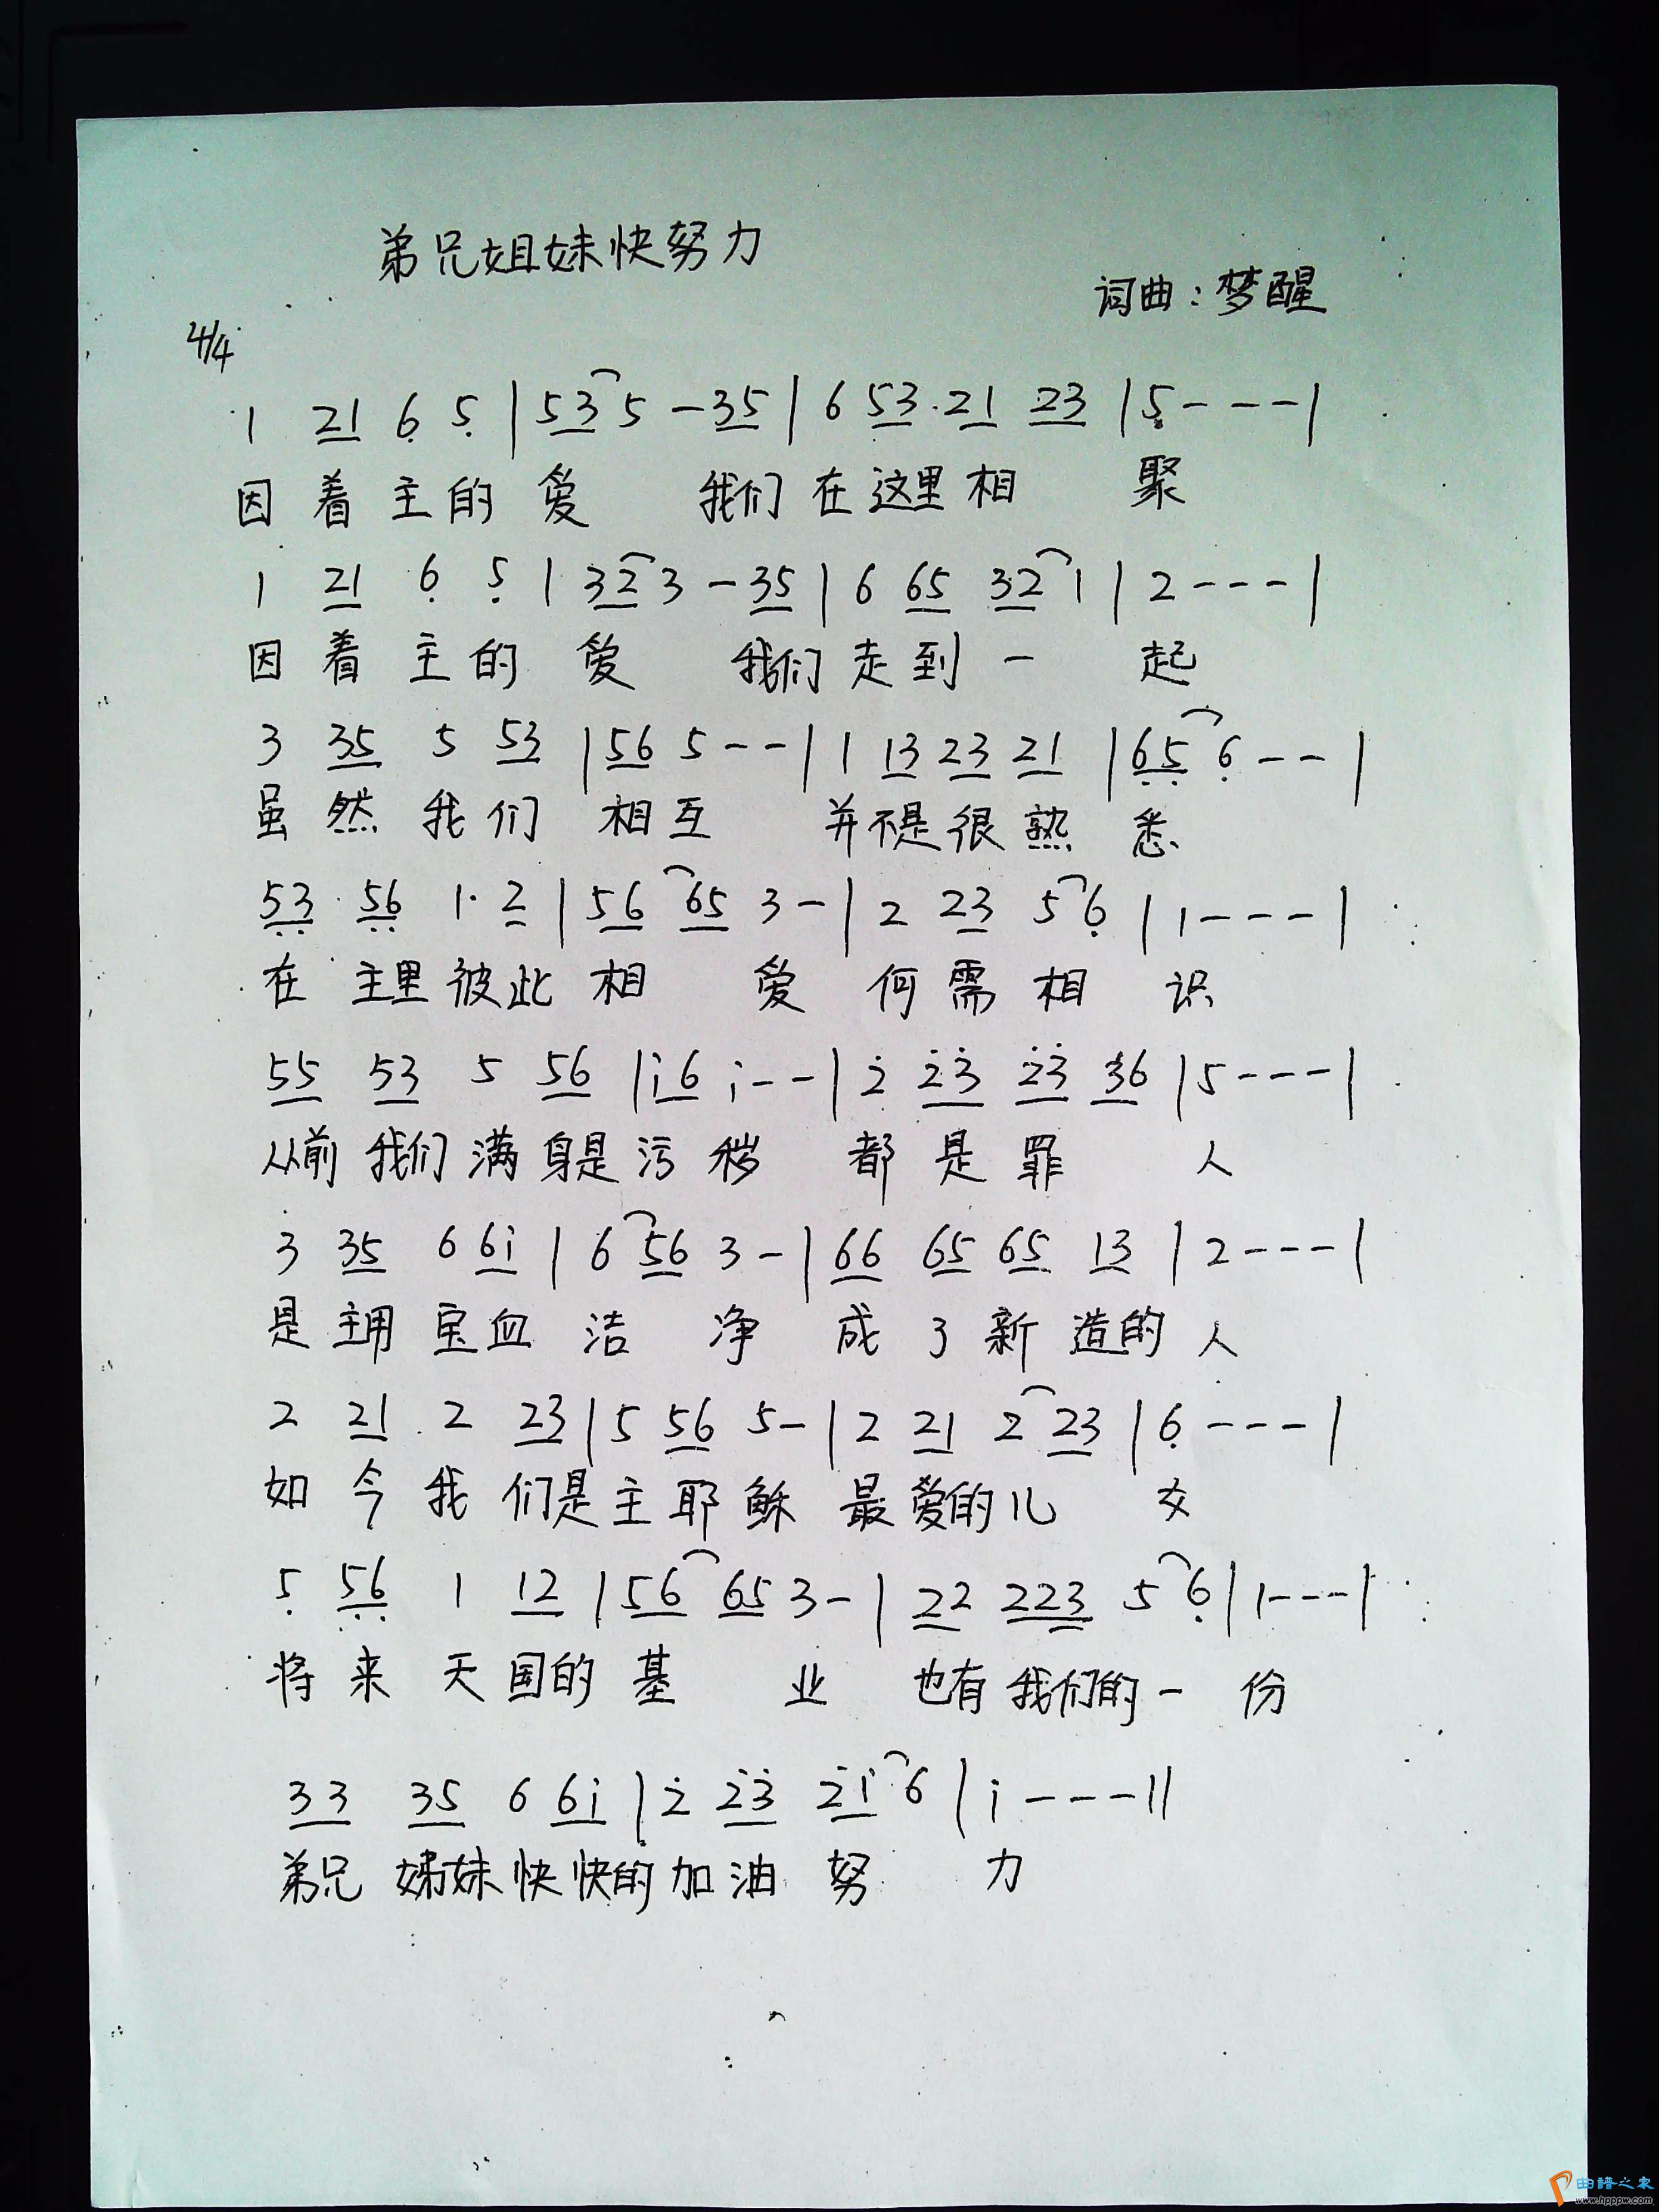 弟兄姐妹快努力
词曲：梦醒
4/4
1 21 6̣ 5̣ | 53 5 - 35 | 6 53 21 23 | 5̣ - - - |
因着主的爱 我们在这里相 聚
1 21 6̣ 5̣ | 32 3 - 35 | 6 65 32 1 | 2 - - - |
因着主的爱 我们走到一 起
3 35 5 53 | 56 5 - - | 1 13 23 21 | 6̣5̣ 6̣ - - |
虽然我们相互 并不是很熟悉
5̣3̣ 5̣6̣ 1· 2 | 56 65 3 - | 2 23 5 6̣ | 1 - - - |
在主里彼此相 爱 何需相 识
55 53 5 56 | i6 i - - | 2̇ 2̇3̇ 2̇3̇ 36 | 5 - - - |
从前我们满身是污秽 都是罪 人
3 35 6 6i | 6 56 3 - | 66 65 65 13 | 2 - - - |
是主用宝血洁 净 成了新造的人
2 21 2 23 | 5 56 5 - | 2 21 2 23 | 6̣ - - - |
如今我们是主耶稣最爱的儿 女
5̣ 5̣6̣ 1 12 | 56 65 3 - | 22 223 5 6̣ | 1 - - - |
将来天国的基 业 也有我们的一份
33 35 6 6i | 2̇ 2̇3̇ 2̇i 6 | i - - - ||
弟兄姊妹快快的加油努 力
曲谱之家
www.hppw.com